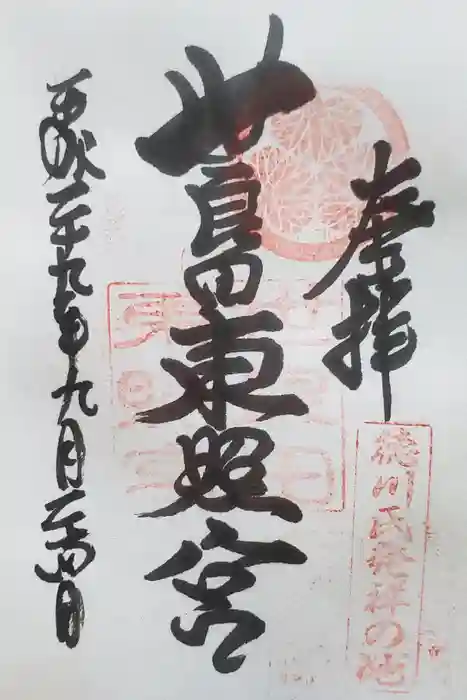 奉拝
徳川氏発祥の地
世良田東照宮
平成二十九年九月二十四日